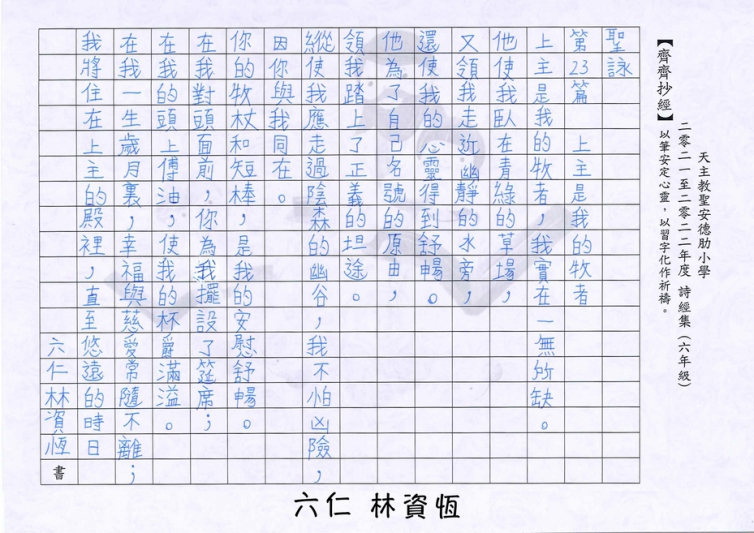 天主教聖安德肋小學
二零二一至二零二二年度 詩經集（六年級）
【齊齊抄經】以筆安定心靈，以習字化作祈禱。
聖詠
第23篇 上主是我的牧者
上主是我的牧者，我實在一無所缺。
他使我臥在青綠的草場，
又領我走近幽靜的水旁，
還使我的心靈得到舒暢。
他為了自己名號的原由，
領我踏上了正義的坦途。
縱使我應走過陰森的幽谷，我不怕凶險，
因你與我同在。
你的牧杖和短棒，是我的安慰舒暢。
在我對頭面前，你為我擺設了筵席；
在我的頭上傅油，使我的杯爵滿溢。
在我一生歲月裏，幸福與慈愛常隨不離；
我將住在上主的殿裡，直至悠遠的時日
六仁林資恆書
六仁 林資恆